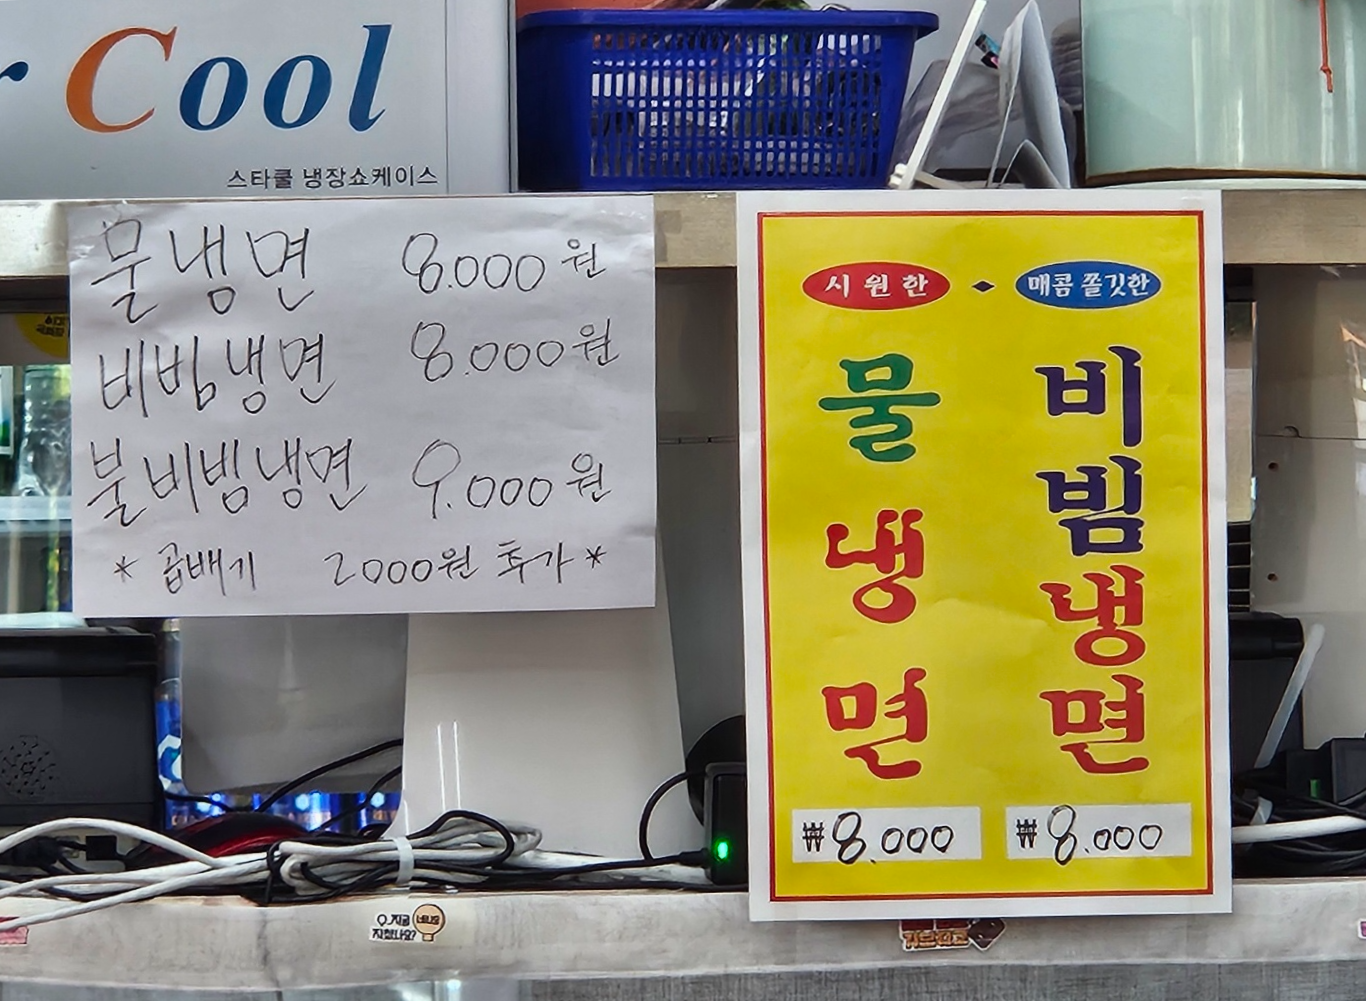 r Cool
스타쿨 냉장쇼케이스
물냉면 8.000원
비빔냉면 8.000원
불비빔냉면 9.000원
* 곱배기 2000원 추가 *
시원한 ◆ 매콤쫄깃한
물냉면
비빔냉면
₩8.000
₩8.000